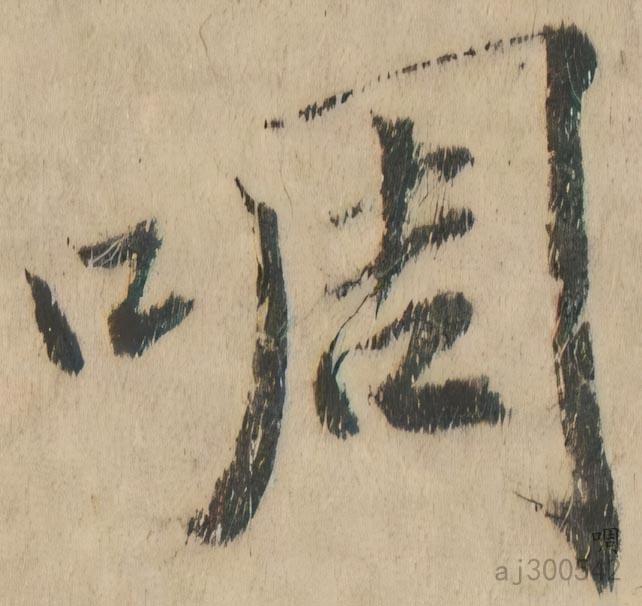 啁
啁
aj300542